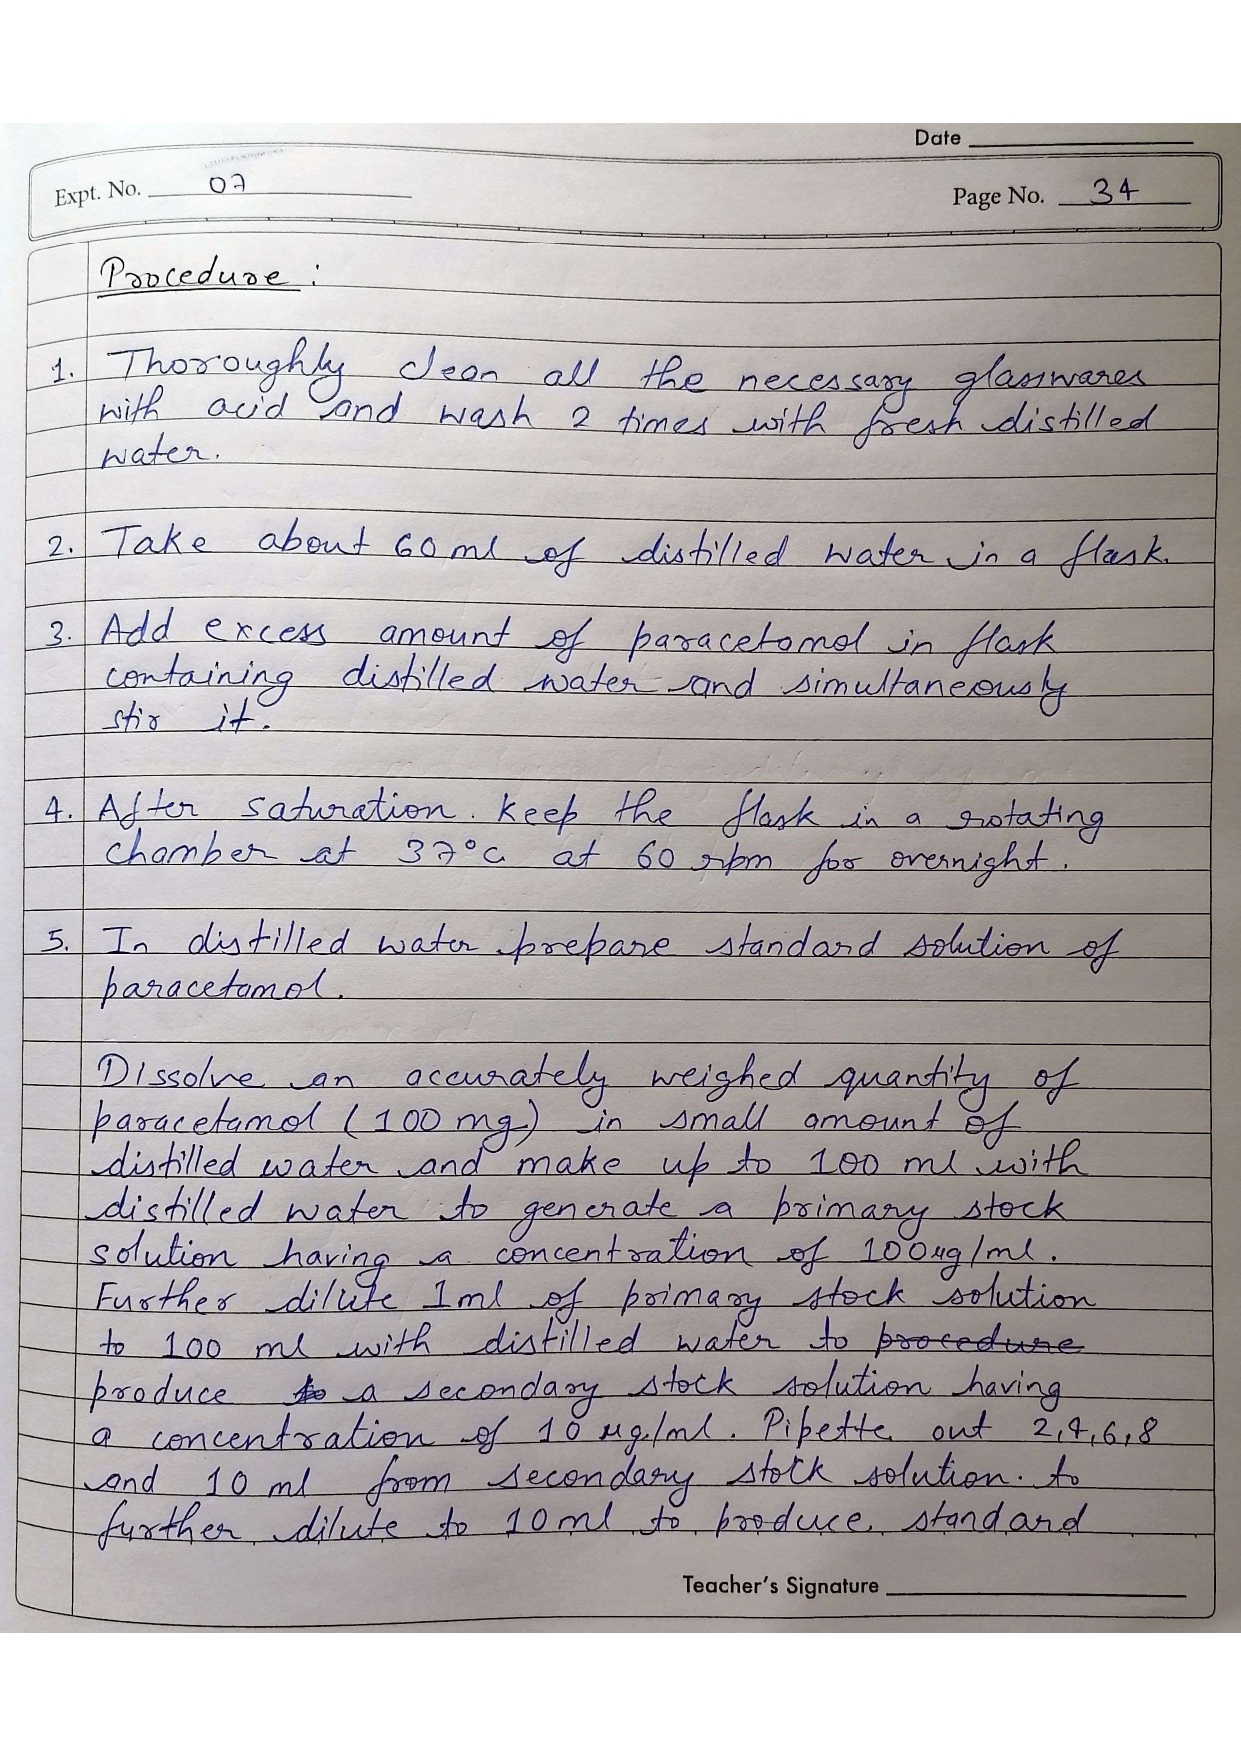 Date
Expt. No. 07
Page No. 34
Procedure :
1. Thoroughly clean all the necessary glasswares
with acid and wash 2 times with fresh distilled
water.
2. Take about 60 ml of distilled water in a flask.
3. Add excess amount of paracetamol in flask
containing distilled water and simultaneously
stir it.
4. After saturation keep the flask in a rotating
chamber at 37°C at 60 rpm for overnight.
5. In distilled water prepare standard solution of
paracetamol.
Dissolve an accurately weighed quantity of
paracetamol (100 mg) in small amount of
distilled water and make up to 100 ml with
distilled water to generate a primary stock
solution having a concentration of 100 µg/ml.
Further dilute 1 ml of primary stock solution
to 100 ml with distilled water to procedure
produce to a secondary stock solution having
a concentration of 10 µg/ml. Pipette out 2,4,6,8
and 10 ml from secondary stock solution to
further dilute to 10 ml to produce standard
Teacher's Signature